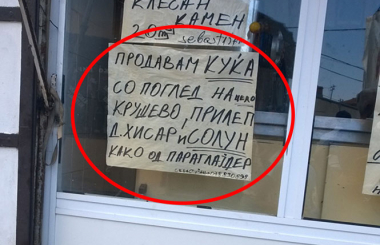 КЛЕСАН
КАМЕН
20m³ sebastian
ПРОДАВАМ КУЌА
СО ПОГЛЕД НА цело
КРУШЕВО, ПРИЛЕП
Д. ХИСАР И СОЛУН
КАКО ОД ПАРАГЛАЈДЕР